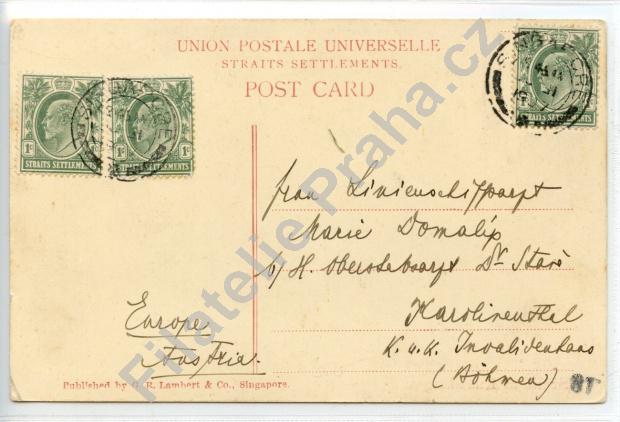 UNION POSTALE UNIVERSELLE
STRAITS SETTLEMENTS.
POST CARD
1c
STRAITS SETTLEMENTS
1c 1c
STRAITS SETTLEMENTS
SINGAPORE
STRAITS SETTLEMENTS
Frau Linienschiffsarzt
Marie Domalíp
b/ H. Oberstabsarzt Dr Starý
Karolinenthal
K. u. k. Invalidenhaus
(Böhmen)
Europe
Austria.
Published by G. R. Lambert & Co., Singapore.
Filatelie Praha.cz